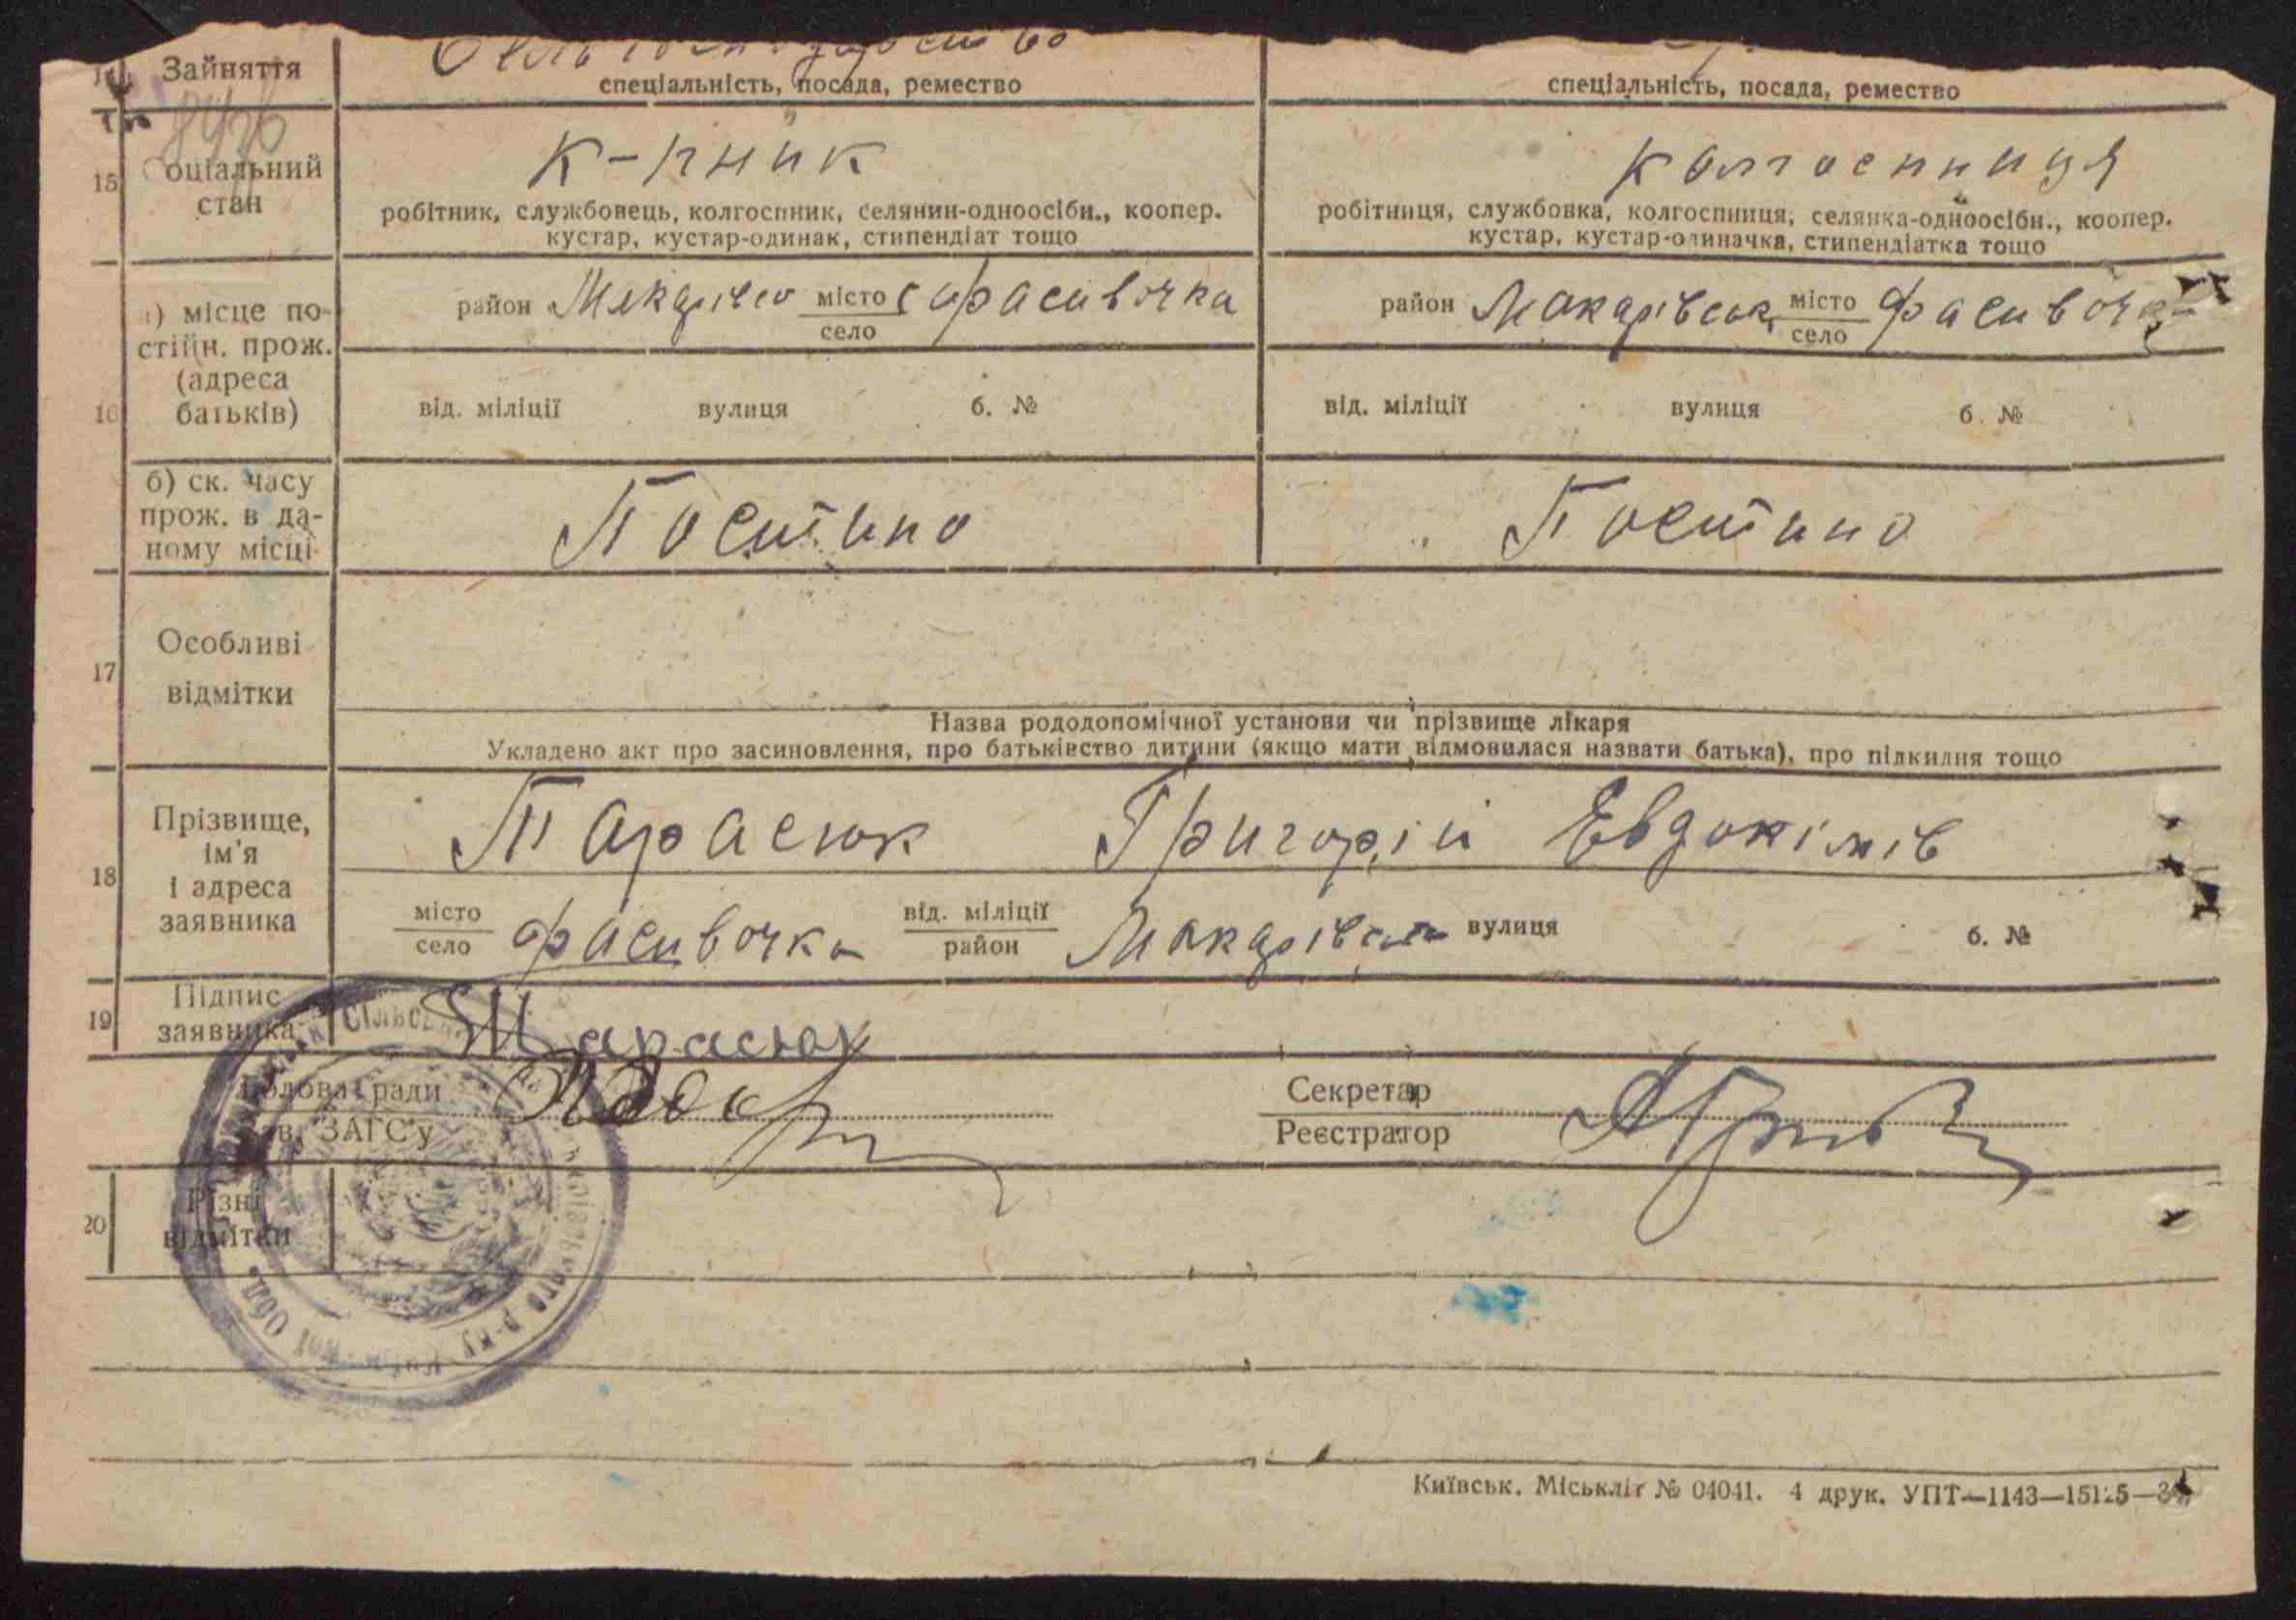 Зайняття
спеціальність, посада, ремество
спеціальність, посада, ремество
15
Соціальний
стан
К-пник
робітник, службовець, колгоспник, селянин-одноосібн., коопер.
кустар, кустар-одинак, стипендіат тощо
Колгоспниця
робітниця, службовка, колгоспниця, селянка-одноосібн., коопер.
кустар, кустар-одиначка, стипендіатка тощо
16
а) місце по-
стійн. прож.
(адреса
батьків)
район місто Фасивочка
село
район Макарівськ місто Фасивочк
село
від. міліції вулиця б. №
від. міліції вулиця б. №
б) ск. часу
прож. в да-
ному місці
Постіино
Постіино
17
Особливі
відмітки
Назва рододопомічної установи чи прізвище лікаря
Укладено акт про засиновлення, про батьківство дитини (якщо мати відмовилася назвати батька), про підкидня тощо
18
Прізвище,
ім'я
і адреса
заявника
Тарасюк Григорій Евдокімів
місто
село
Фасивочка
від. міліції
район
Макарівськ
вулиця б. №
19
Підпис
заявника
Тарасюк
Голова ради
Зав. ЗАГС'у
Секретар
Реєстратор
20
Різні
відмітки
р-ну
Обл.
Київськ. Міськліт № 04041. 4 друк. УПТ—1143—15125—3